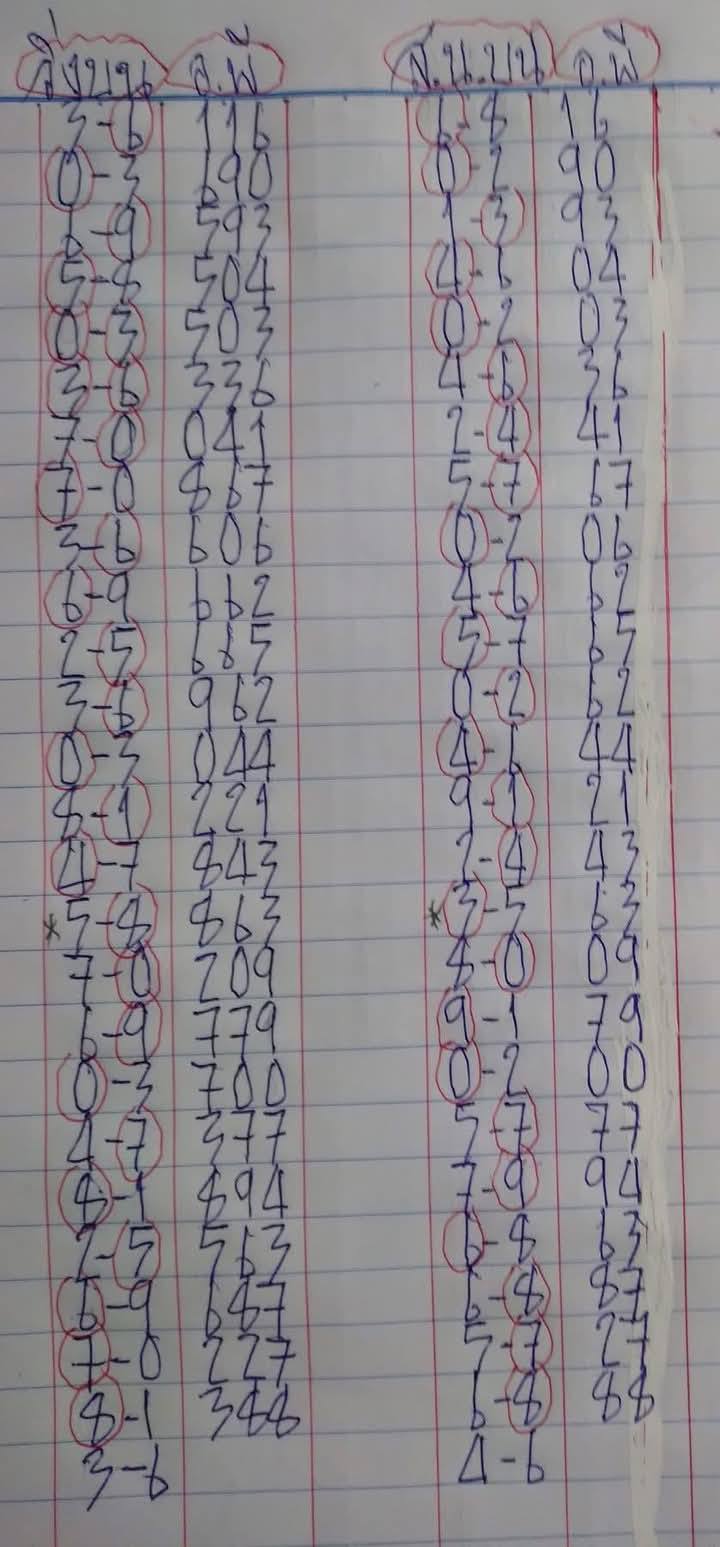 3-6 116 6-8 16
0-3 690 0-2 90
6-9 593 1-3 93
5-8 504 4-6 04
0-3 503 0-2 03
3-6 336 4-6 36
7-0 041 2-4 41
7-0 867 5-7 67
3-6 606 0-2 06
6-9 662 4-6 62
2-5 685 5-7 65
3-6 962 0-2 62
0-3 044 4-6 44
8-1 221 9-1 21
4-7 843 2-4 43
*5-8 863 *3-5 63
7-0 209 8-0 09
6-9 779 9-1 79
0-3 700 0-2 00
4-7 377 5-7 77
8-1 894 7-9 94
2-5 563 6-8 63
6-9 687 6-8 87
7-0 227 5-7 27
8-1 388 6-8 88
3-6 4-6